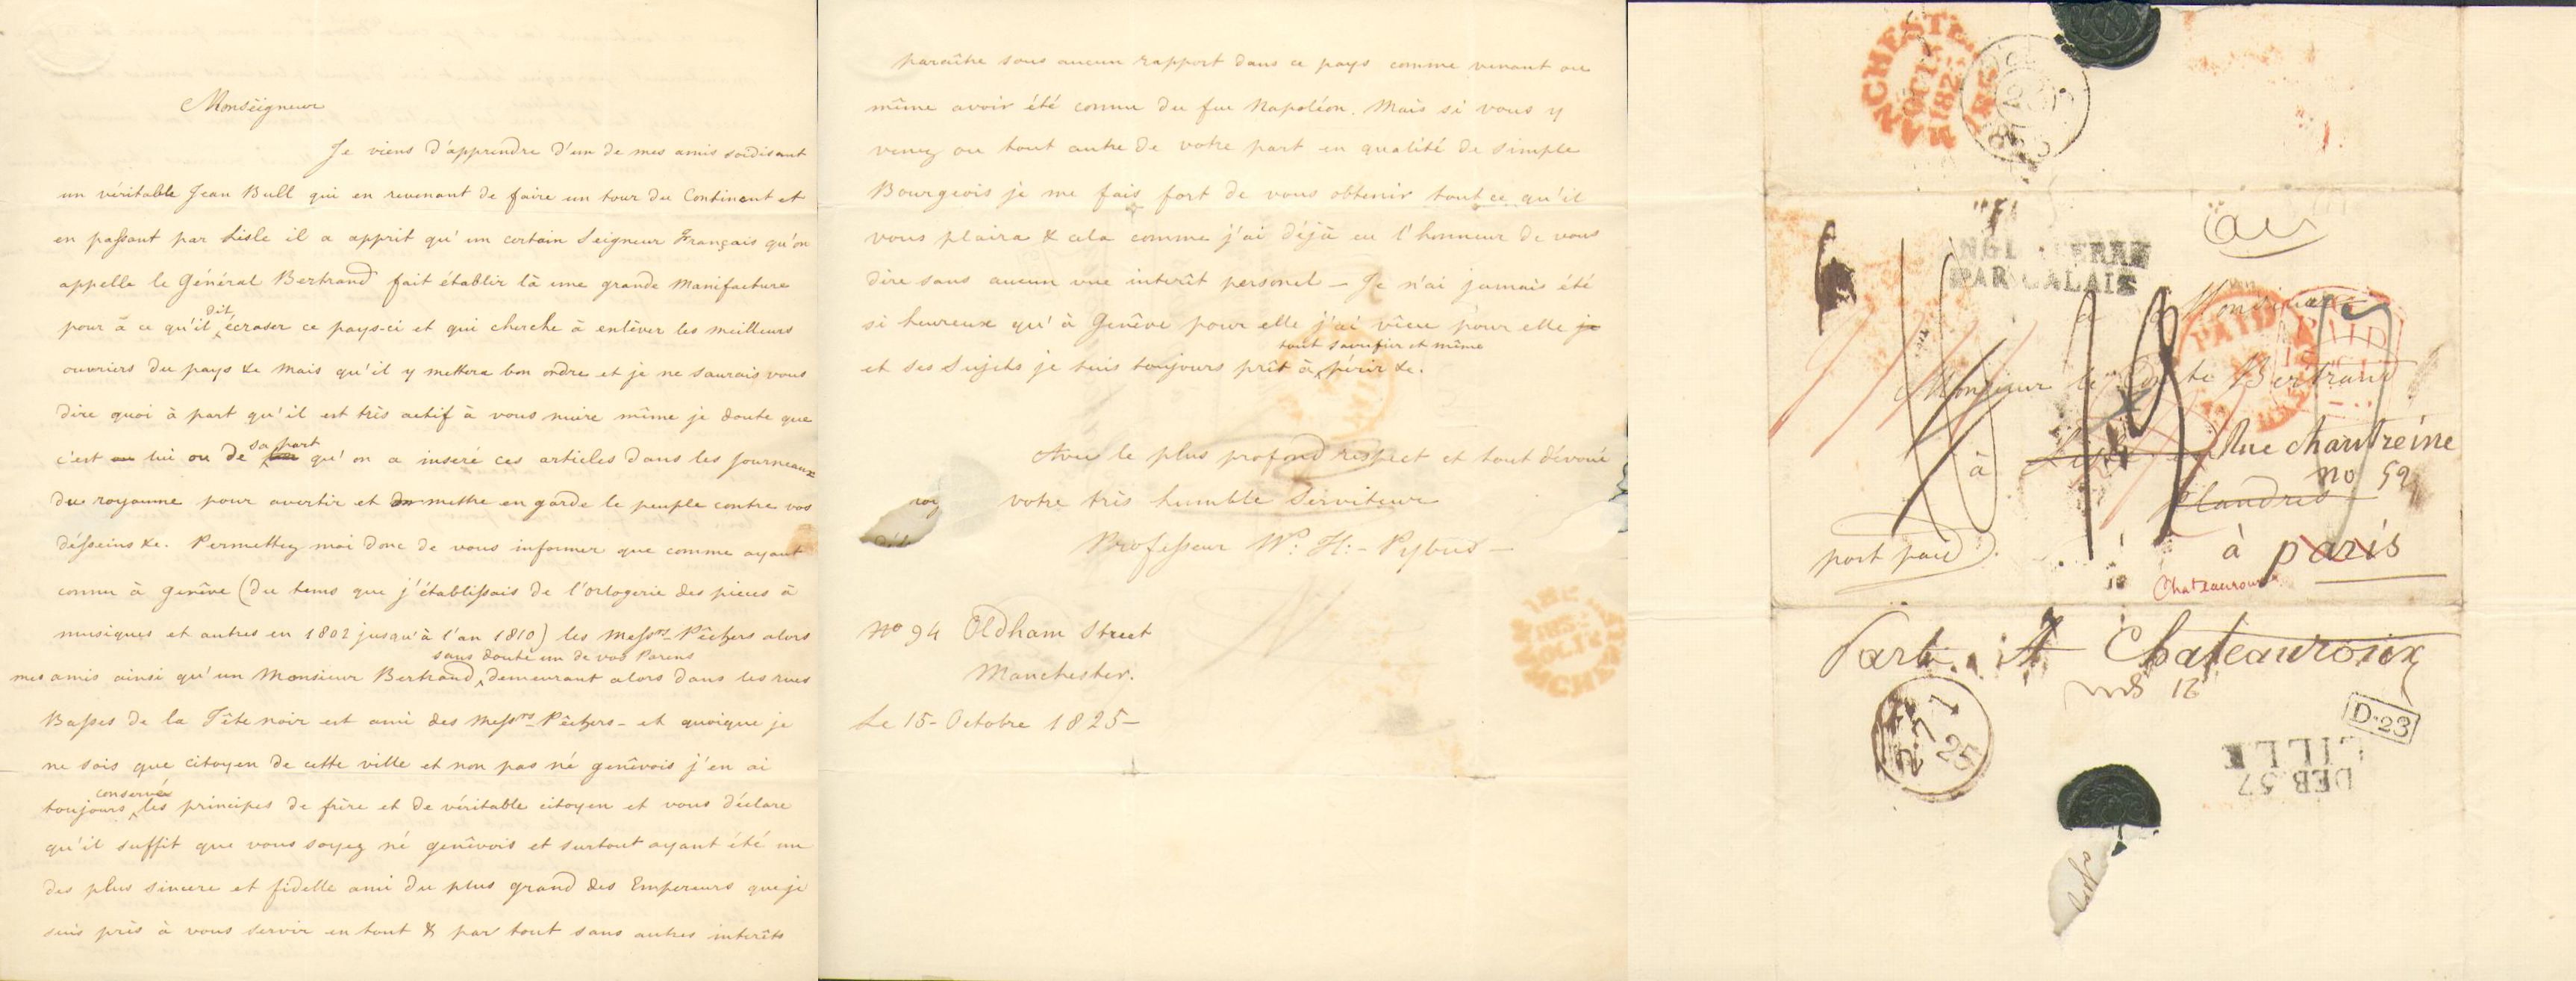 Monsèigneur
Je viens d'apprendre d'un de mes amis soidisant
un véritable Jean Bull qui en revenant de faire un tour du Continent et
en passant par Lisle il a apprit qu'un certain Seigneur Français qu'on
appelle le Général Bertrand fait établir là une grande Manifacture
pour à ce qu'il dit écraser ce pays-ci et qui cherche à enlèver les meilleurs
ouvriers du pays &c Mais qu'il y mettera bon ordre et je ne saurais vous
dire quoi à part qu'il est très actif à vous nuire même je doute que
c'est lui ou de sa part qu'on a inseré ces articles dans les Journeaux
du royaume pour avertir et mettre en garde le peuple contre vos
désseins &c. Permettez moi donc de vous informer que comme ayant
connu à Genêve (du tems que j'établissais de l'orlogerie des pieces à
musiques et autres en 1802 jusqu'à l'an 1810) les Messrs alors
sans doute un de vos Parens
mes amis ainsi qu'un Monsieur Bertrand demeurant alors dans les rues
Basses de la Tête noir est ami des Messrs - et quoique je
ne sois que citoyen de cette ville et non pas né genêvois j'en ai
toujours conservé les principes de frère et de véritable citoyen et vous déclare
qu'il suffit que vous soyez né genêvois et surtout ayant été un
des plus sincere et fidelle ami du plus grand des Empereurs que je
suis près à vous servir en tout & par tout sans autres interêts
paraître sous aucun rapport dans ce pays comme venant ou
même avoir été connu du feu Napoléon. Mais si vous y
venez ou tout autre de votre part en qualité de simple
Bourgeois je me fais fort de vous obtenir tout ce qu'il
vous plaira & cela comme j'ai déjà eu l'honneur de vous
dire sans aucun vue interêt personel - Je n'ai jamais été
si heureux qu'à Genêve pour elle j'ai vêcu pour elle je
tout sacrifier et même
et ses Sujets je suis toujours prêt à périr &c.
Avec le plus profond respect et tout dévoué
votre très humble Serviteur
Professeur Wm. H:- Pybus -
No 94 Oldham Street
Manchester.
Le 15- Octobre 1825-
MANCHESTER
OCT 15
ANGLETERRE
PAR CALAIS
a Monsieur
Monsieur le Comte Bertrand
PAID
à Lisle Rue chantreine
no 59
Flandres
à paris
port paié
Chateauroux
Part. A Chateauroux
12
D.23
DEB. 57
LILLE